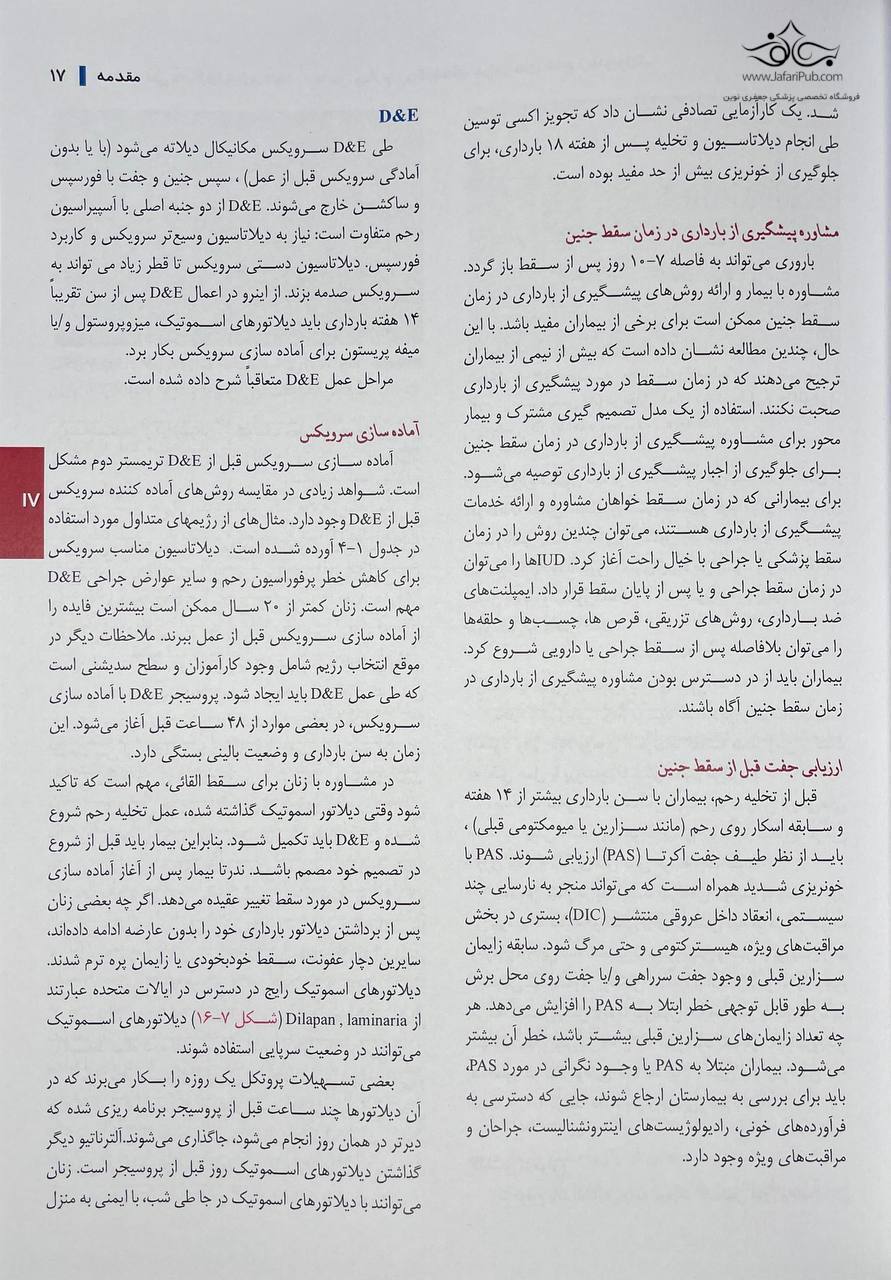 جعفری
www.JafariPub.com
فروشگاه تخصصی پزشکی جعفری نوین
مقدمه ۱۷
شد. یک کارآزمایی تصادفی نشان داد که تجویز اکسی توسین
طی انجام دیلاتاسیون و تخلیه پس از هفته ۱۸ بارداری، برای
جلوگیری از خونریزی بیش از حد مفید بوده است.
مشاوره پیشگیری از بارداری در زمان سقط جنین
باروری می‌تواند به فاصله ۷-۱۰ روز پس از سقط باز گردد.
مشاوره با بیمار و ارائه روش‌های پیشگیری از بارداری در زمان
سقط جنین ممکن است برای برخی از بیماران مفید باشد. با این
حال، چندین مطالعه نشان داده است که بیش از نیمی از بیماران
ترجیح می‌دهند که در زمان سقط در مورد پیشگیری از بارداری
صحبت نکنند. استفاده از یک مدل تصمیم گیری مشترک و بیمار
محور برای مشاوره پیشگیری از بارداری در زمان سقط جنین
برای جلوگیری از اجبار پیشگیری از بارداری توصیه می‌شود.
برای بیمارانی که در زمان سقط خواهان مشاوره و ارائه خدمات
پیشگیری از بارداری هستند، می‌توان چندین روش را در زمان
سقط پزشکی یا جراحی با خیال راحت آغاز کرد. IUDها را می‌توان
در زمان سقط جراحی و یا پس از پایان سقط قرار داد. ایمپلنت‌های
ضد بارداری، روش‌های تزریقی، قرص ها، چسب‌ها و حلقه‌ها
را می‌توان بلافاصله پس از سقط جراحی یا دارویی شروع کرد.
بیماران باید از در دسترس بودن مشاوره پیشگیری از بارداری در
زمان سقط جنین آگاه باشند.
ارزیابی جفت قبل از سقط جنین
قبل از تخلیه رحم، بیماران با سن بارداری بیشتر از ۱۴ هفته
و سابقه اسکار روی رحم (مانند سزارین یا میومکتومی قبلی) ،
باید از نظر طیف جفت آکرتا (PAS) ارزیابی شوند. PAS با
خونریزی شدید همراه است که می‌تواند منجر به نارسایی چند
سیستمی، انعقاد داخل عروقی منتشر (DIC)، بستری در بخش
مراقبت‌های ویژه، هیسترکتومی و حتی مرگ شود. سابقه زایمان
سزارین قبلی و وجود جفت سرراهی و/یا جفت روی محل برش
به طور قابل توجهی خطر ابتلا به PAS را افزایش می‌دهد. هر
چه تعداد زایمان‌های سزارین قبلی بیشتر باشد، خطر آن بیشتر
می‌شود. بیماران مبتلا به PAS یا وجود نگرانی در مورد PAS،
باید برای بررسی به بیمارستان ارجاع شوند، جایی که دسترسی به
فرآورده‌های خونی، رادیولوژیست‌های اینترونشنالیست، جراحان و
مراقبت‌های ویژه وجود دارد.
D&E
طی D&E سرویکس مکانیکال دیلاته می‌شود (با یا بدون
آمادگی سرویکس قبل از عمل) ، سپس جنین و جفت با فورسپس
و ساکشن خارج می‌شوند. D&E از دو جنبه اصلی با آسپیراسیون
رحم متفاوت است: نیاز به دیلاتاسیون وسیع‌تر سرویکس و کاربرد
فورسپس. دیلاتاسیون دستی سرویکس تا قطر زیاد می تواند به
سرویکس صدمه بزند. از اینرو در اعمال D&E پس از سن تقریباً
۱۴ هفته بارداری باید دیلاتورهای اسموتیک، میزوپروستول و/یا
میفه پریستون برای آماده سازی سرویکس بکار برد.
مراحل عمل D&E متعاقباً شرح داده شده است.
آماده سازی سرویکس
آماده سازی سرویکس قبل از D&E تریمستر دوم مشکل
است. شواهد زیادی در مقایسه روش‌های آماده کننده سرویکس
قبل از D&E وجود دارد. مثال‌های از رژیمهای متداول مورد استفاده
در جدول ۱-۴ آورده شده است. دیلاتاسیون مناسب سرویکس
برای کاهش خطر پرفوراسیون رحم و سایر عوارض جراحی D&E
مهم است. زنان کمتر از ۲۰ سال ممکن است بیشترین فایده را
از آماده سازی سرویکس قبل از عمل ببرند. ملاحظات دیگر در
موقع انتخاب رژیم شامل وجود کارآموزان و سطح سدیشنی است
که طی عمل D&E باید ایجاد شود. پروسیجر D&E با آماده سازی
سرویکس، در بعضی موارد از ۴۸ ساعت قبل آغاز می‌شود. این
زمان به سن بارداری و وضعیت بالینی بستگی دارد.
در مشاوره با زنان برای سقط القائی، مهم است که تاکید
شود وقتی دیلاتور اسموتیک گذاشته شده، عمل تخلیه رحم شروع
شده و D&E باید تکمیل شود. بنابراین بیمار باید قبل از شروع
در تصمیم خود مصمم باشد. ندرتا بیمار پس از آغاز آماده سازی
سرویکس در مورد سقط تغییر عقیده می‌دهد. اگر چه بعضی زنان
پس از برداشتن دیلاتور بارداری خود را بدون عارضه ادامه داده‌اند،
سایرین دچار عفونت، سقط خودبخودی یا زایمان پره ترم شدند.
دیلاتورهای اسموتیک رایج در دسترس در ایالات متحده عبارتند
از Dilapan , laminaria (شکل ۷-۱۶) دیلاتورهای اسموتیک
می‌توانند در وضعیت سرپایی استفاده شوند.
بعضی تسهیلات پروتکل یک روزه را بکار می‌برند که در
آن دیلاتورها چند ساعت قبل از پروسیجر برنامه ریزی شده که
دیرتر در همان روز انجام می‌شود، جاگذاری می‌شوند.آلترناتیو دیگر
گذاشتن دیلاتورهای اسموتیک روز قبل از پروسیجر است. زنان
می‌توانند با دیلاتورهای اسموتیک در جا طی شب، با ایمنی به منزل
۱۷